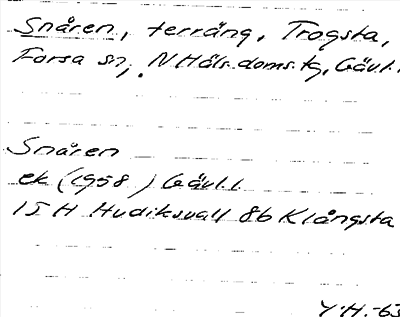 Snåren, terräng, Trogsta,
Forsa sn, N Häls. doms. tg, Gävl. l.
Snåren
ek (1958) Gävl. l.
15 H Hudiksvall 8b Klångsta
Y.H.-63